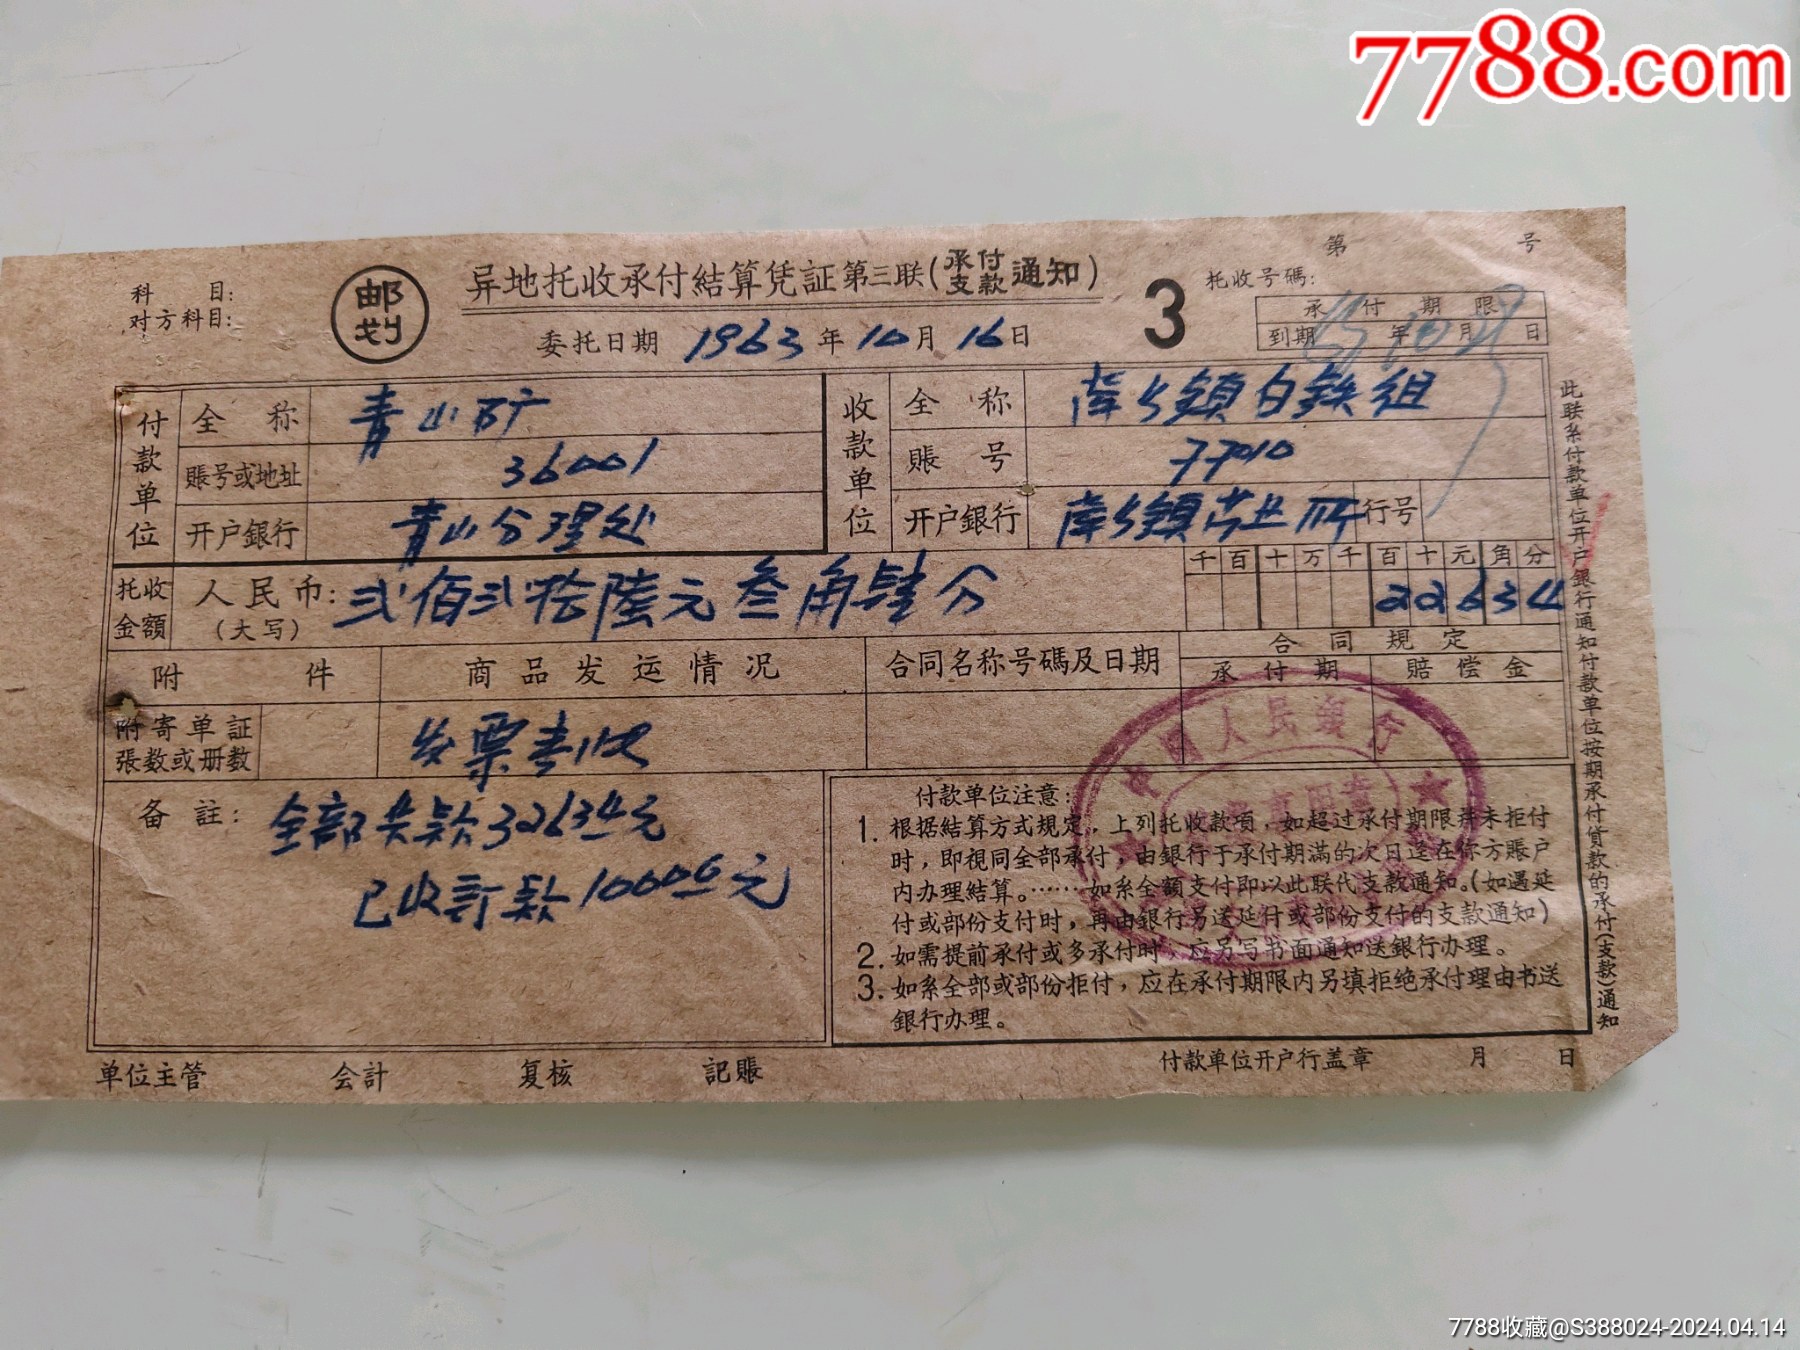 7788.com
第 号
科 目:
对方科目:
邮划
异地托收承付結算凭証第三联(承付支款通知)
3
托收号碼:
承付期限
到期 年 月 日
委托日期 1963年10月16日
付款单位
全称 青山矿
賬号或地址 36001
开户銀行 青山分理处
收款单位
全称 鎮白鉄组
賬号 77010
开户銀行 鎮 所 行号
托收金額
人民币:(大写) 弍佰弍拾陸元叁角肆分
千百十万千百十元角分
22634
附件 商品发运情况 合同名称号碼及日期 合同規定
承付期 赔偿金
附寄单証張数或册数
发票壱张
备註: 全部共款326.34元
已收訂款100.00元
中国人民銀行
付款单位注意:
1. 根据結算方式規定,上列托收款項,如超过承付期限并未拒付
时,即視同全部承付,由銀行于承付期滿的次日逕在你方賬户
内办理結算。……如系全額支付即以此联代支款通知。(如遇延
付或部份支付时,再由銀行另送延付或部份支付的支款通知)
2. 如需提前承付或多承付时,应另写书面通知送銀行办理。
3. 如系全部或部份拒付,应在承付期限内另填拒绝承付理由书送
銀行办理。
此联系付款单位开户銀行通知付款单位按期承付貨款的承付(支款)通知
单位主管 会計 复核 記賬
付款单位开户行盖章 月 日
7788收藏@S388024-2024.04.14